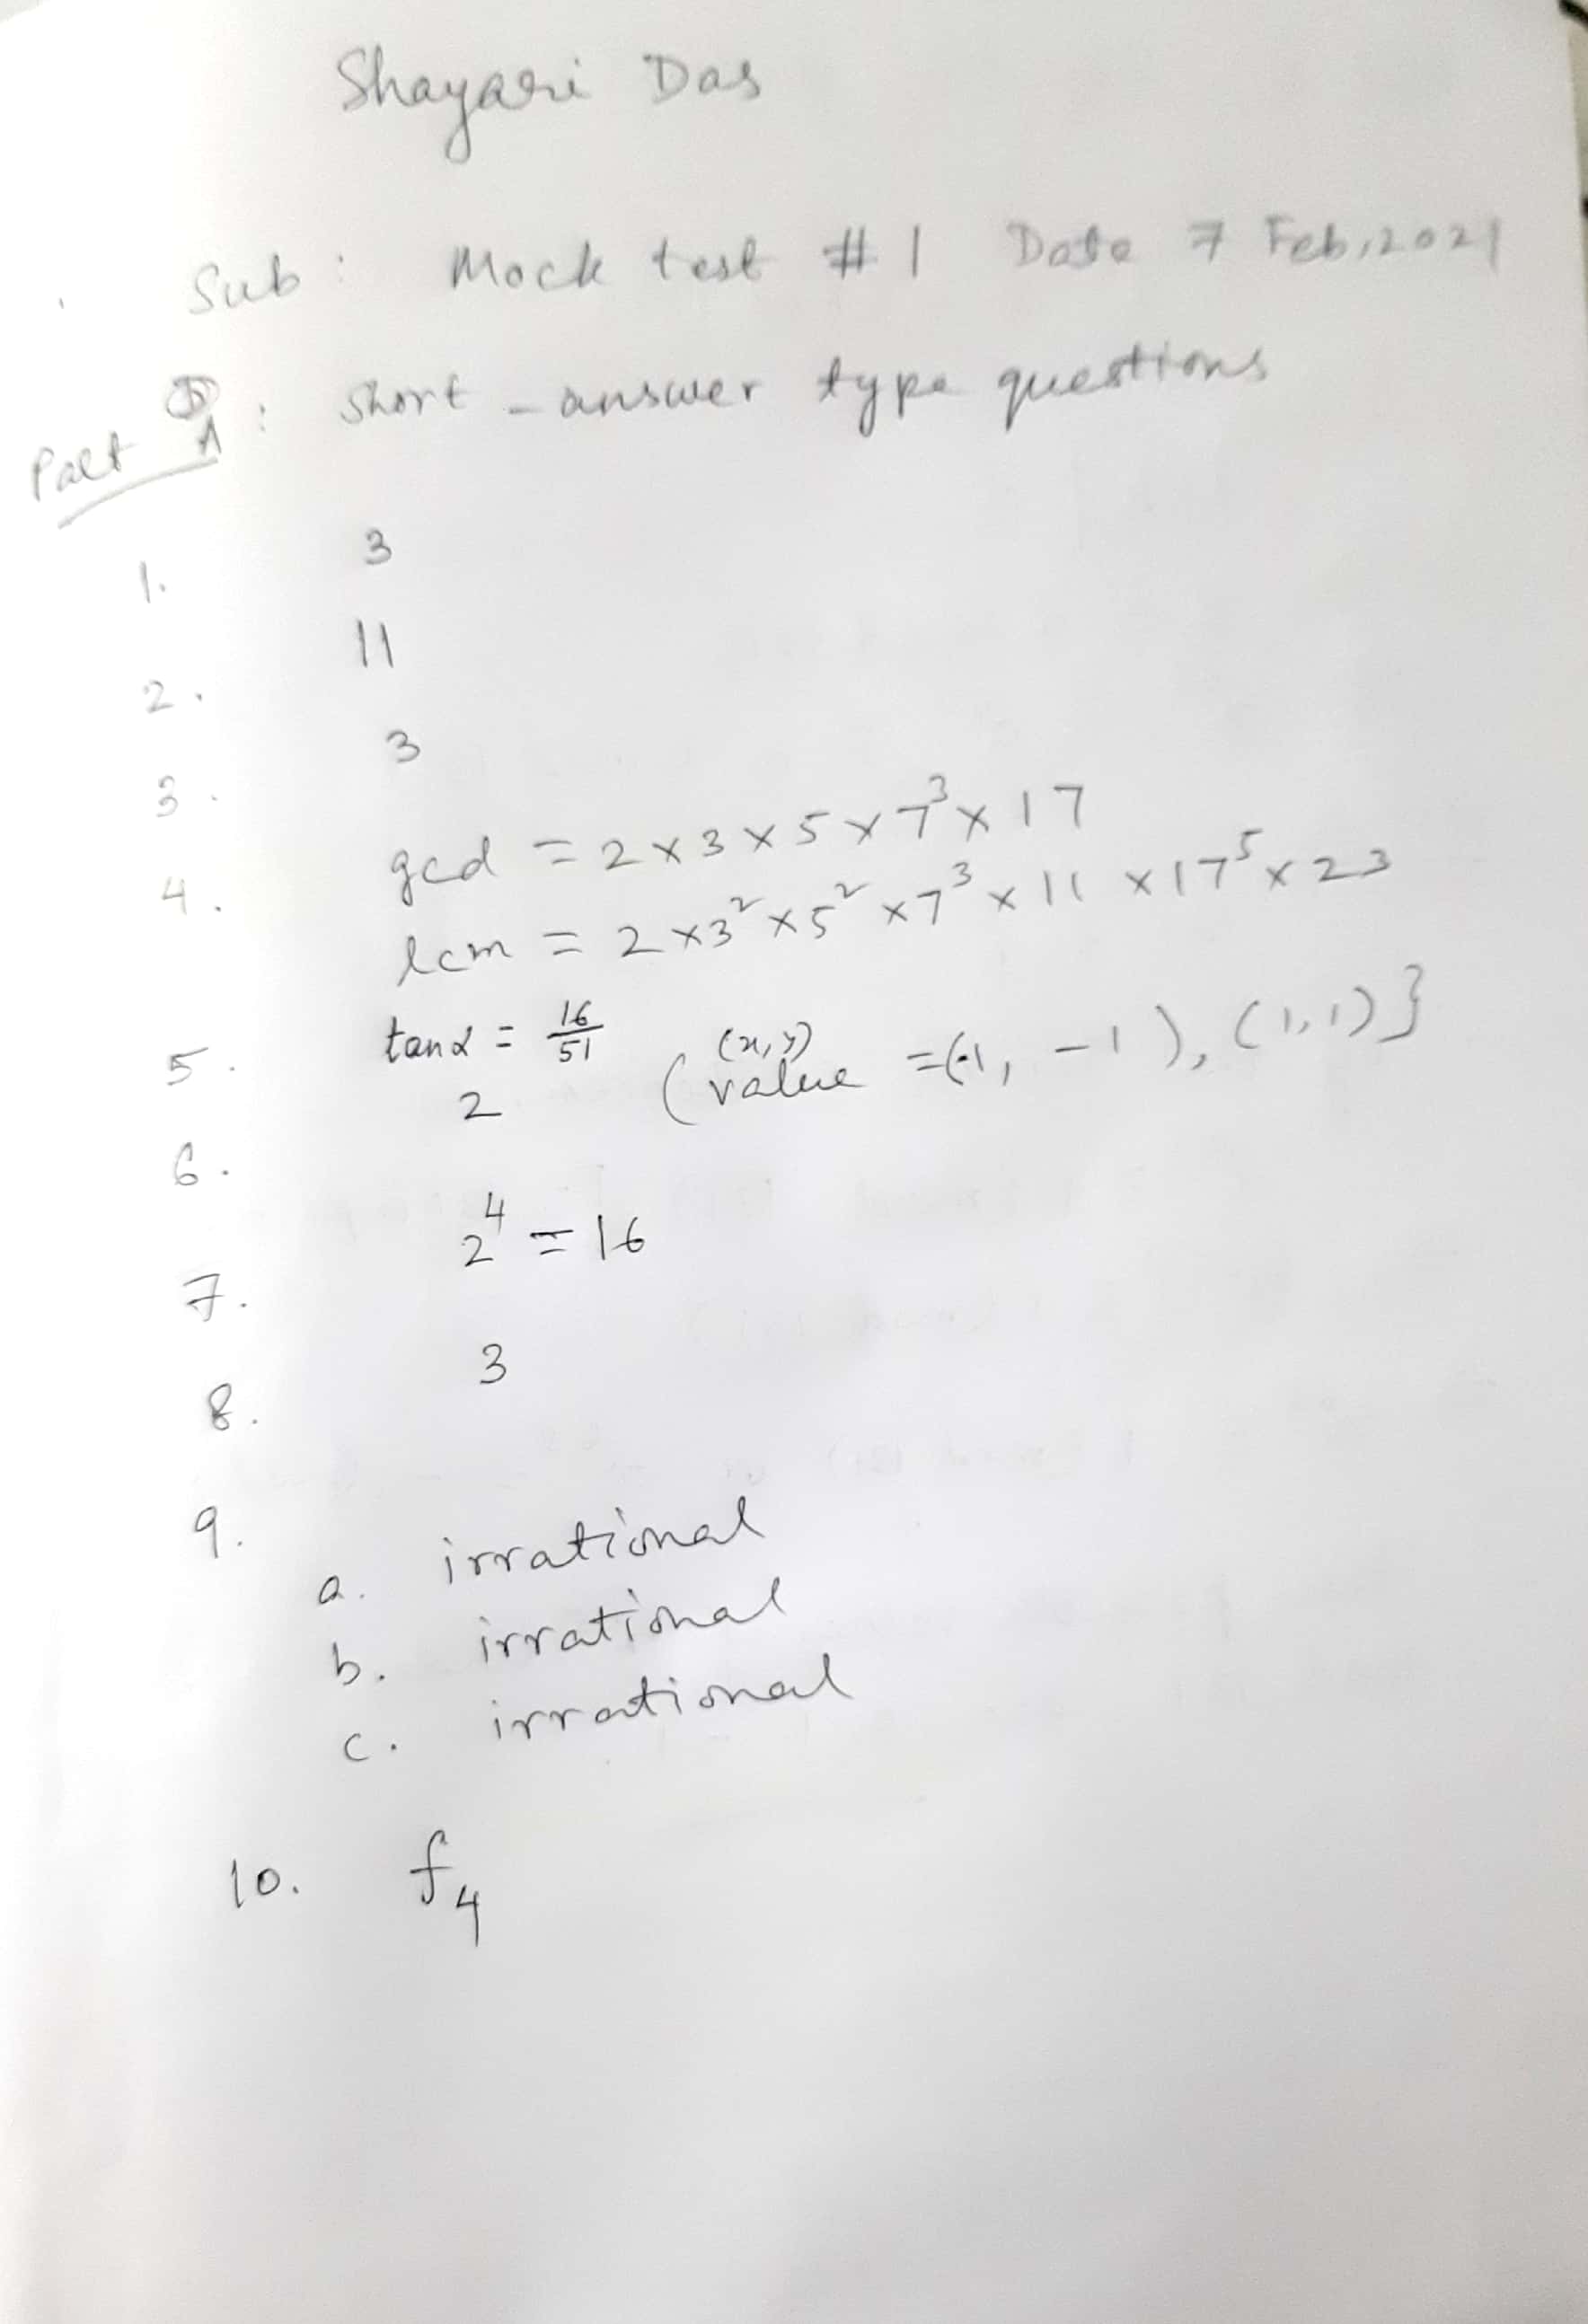 Shayari Das
Sub : Mock test # 1 Date 7 Feb, 2021
Part A : Short - answer type questions
1. 3
2. 11
3. 3
4. gcd = 2 × 3 × 5 × 7³ × 17
lcm = 2 × 3² × 5² × 7³ × 11 × 17⁵ × 23
5. tan α = 16/51
6. 2 ( (x, y) value = (-1, -1), (1, 1) }
7. 2⁴ = 16
8. 3
9.
a. irrational
b. irrational
c. irrational
10. f₄